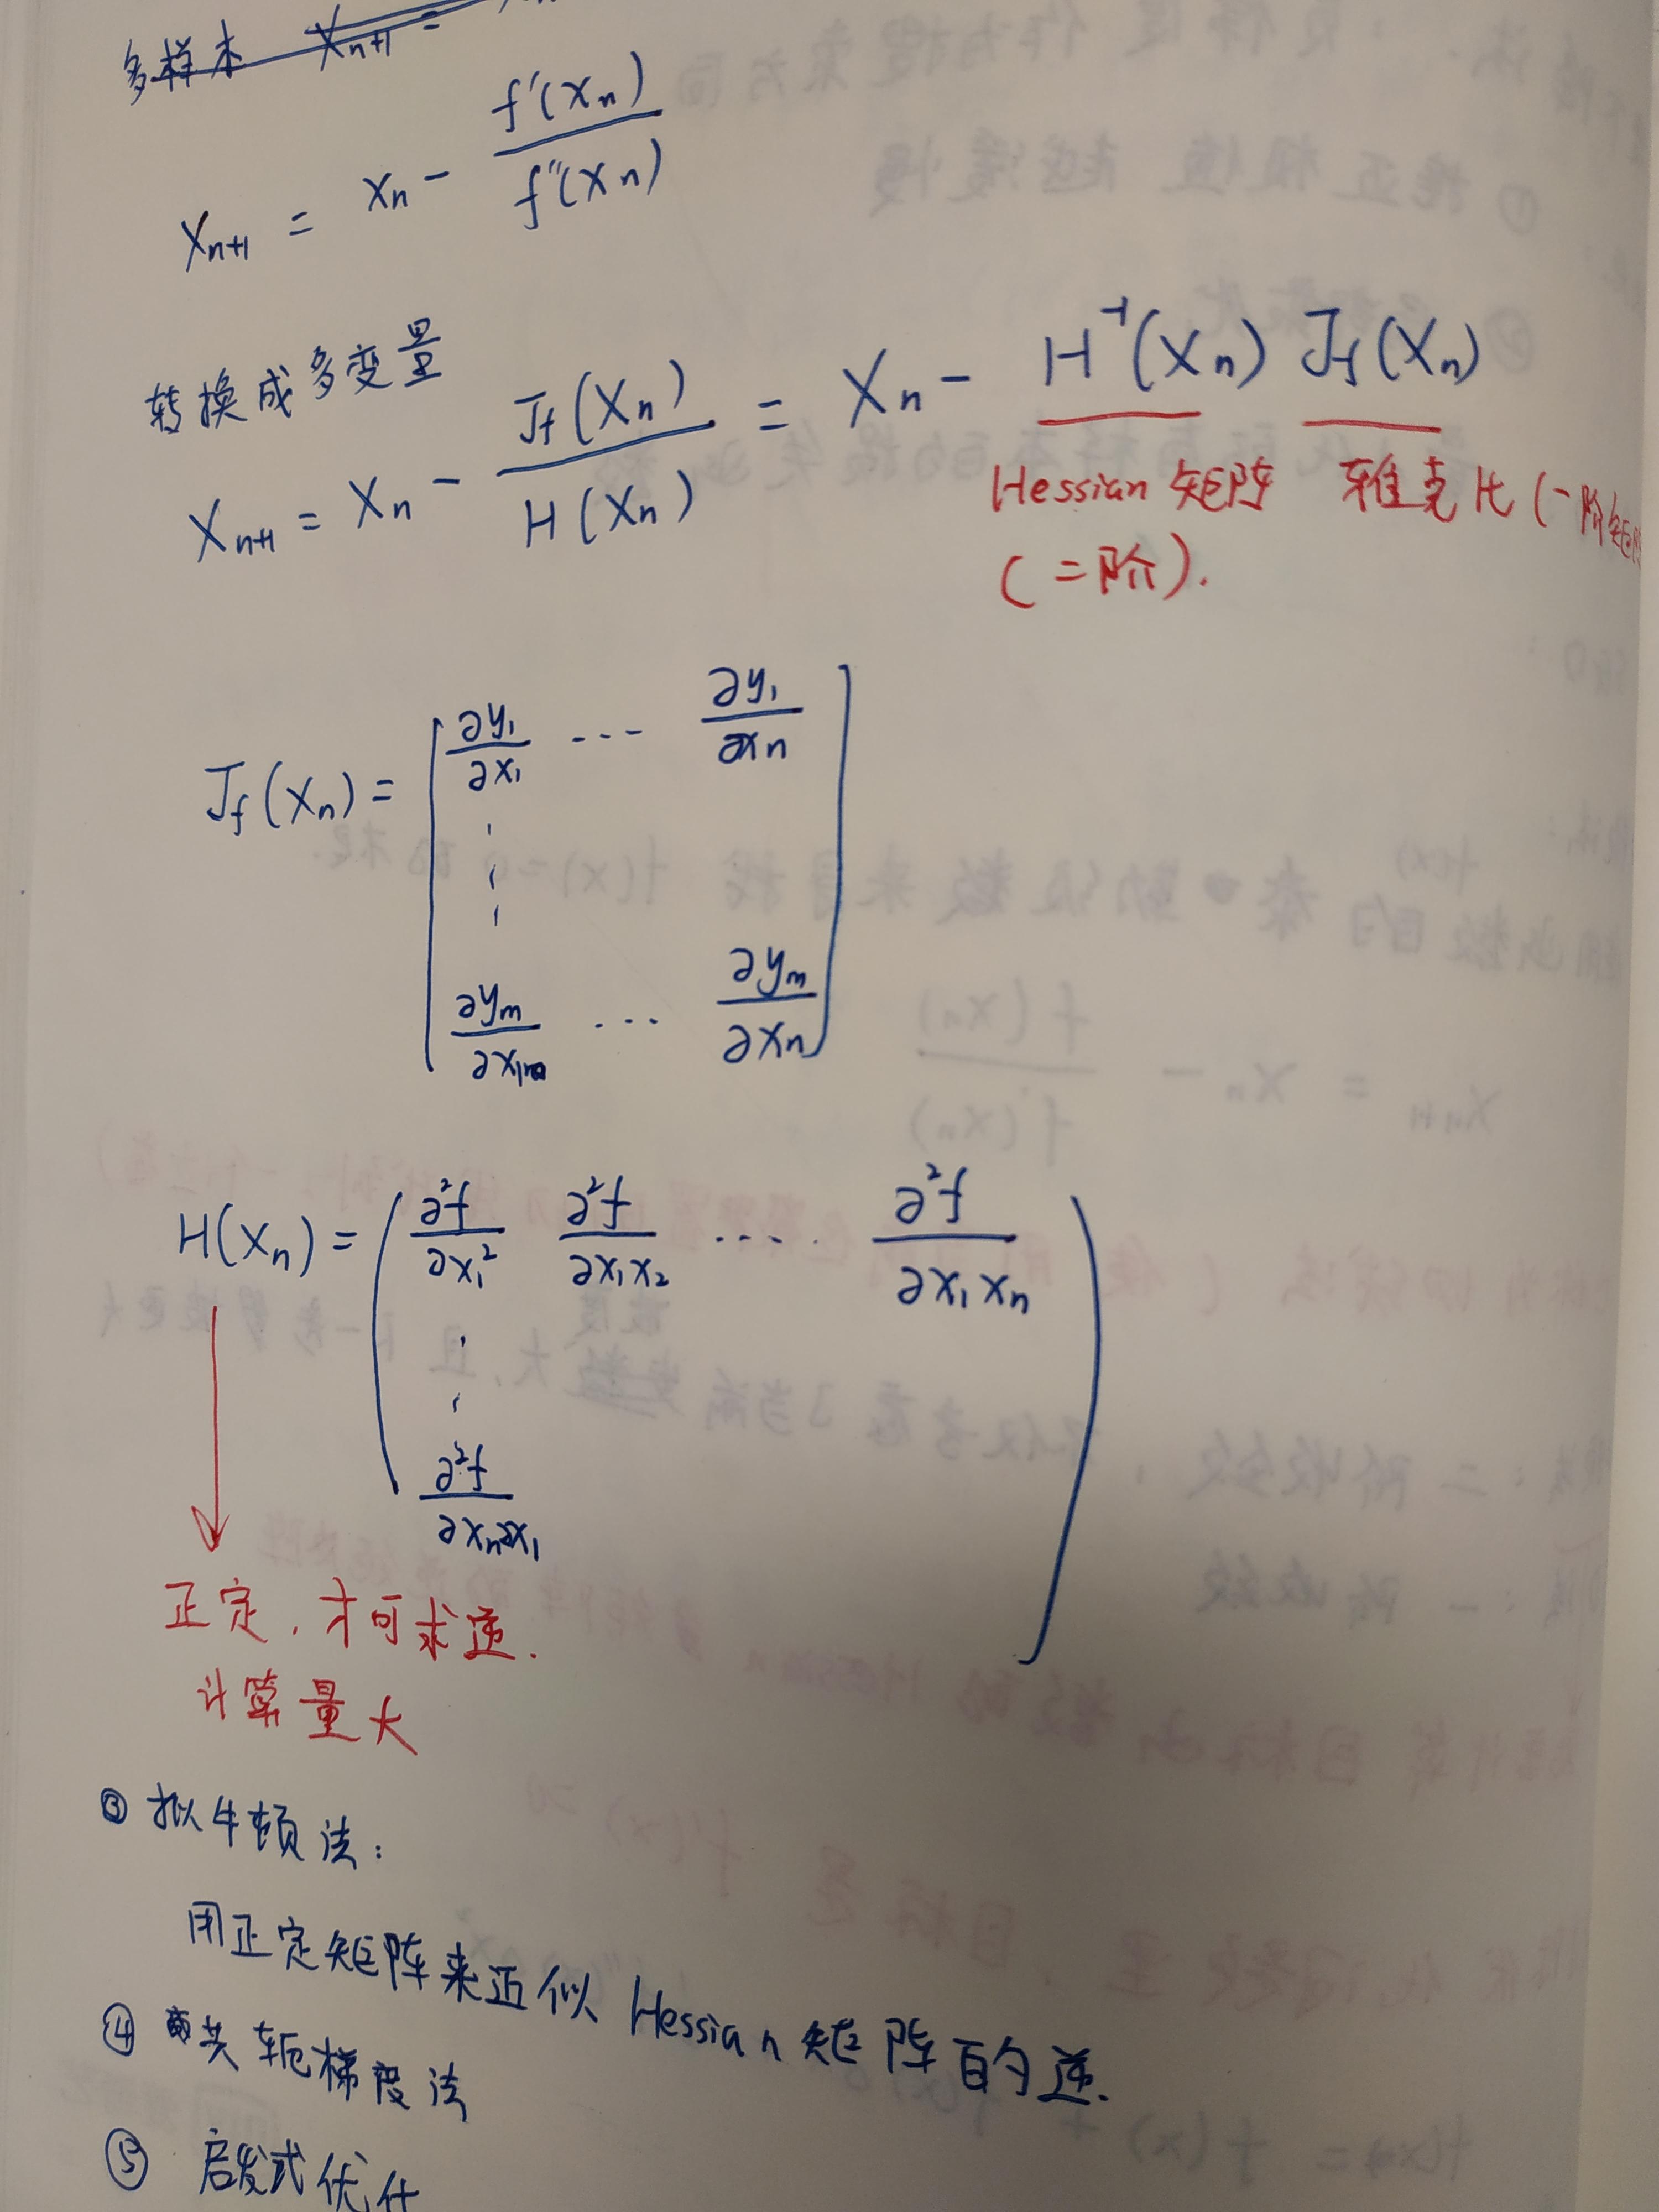 多样本 Xn+1 =
Xn+1 = Xn - f'(Xn) / f''(Xn)
转换成多变量
Xn+1 = Xn - Jf(Xn) / H(Xn) = Xn - H⁻¹(Xn) Jf(Xn)
Hessian矩阵 雅可比 (一阶矩阵
(二阶).
Jf(Xn) = [ ∂y1/∂x1 ... ∂y1/∂xn
⋮
∂ym/∂x1 ... ∂ym/∂xn ]
H(Xn) = ( ∂²f/∂x1² ∂²f/∂x1x2 ... ∂²f/∂x1xn
⋮
∂²f/∂xn∂x1 )
正定，才可求逆.
计算量大
③ 拟牛顿法：
用正定矩阵来近似Hessian矩阵百分逆.
④ 共轭梯度法
⑤ 启发式优化